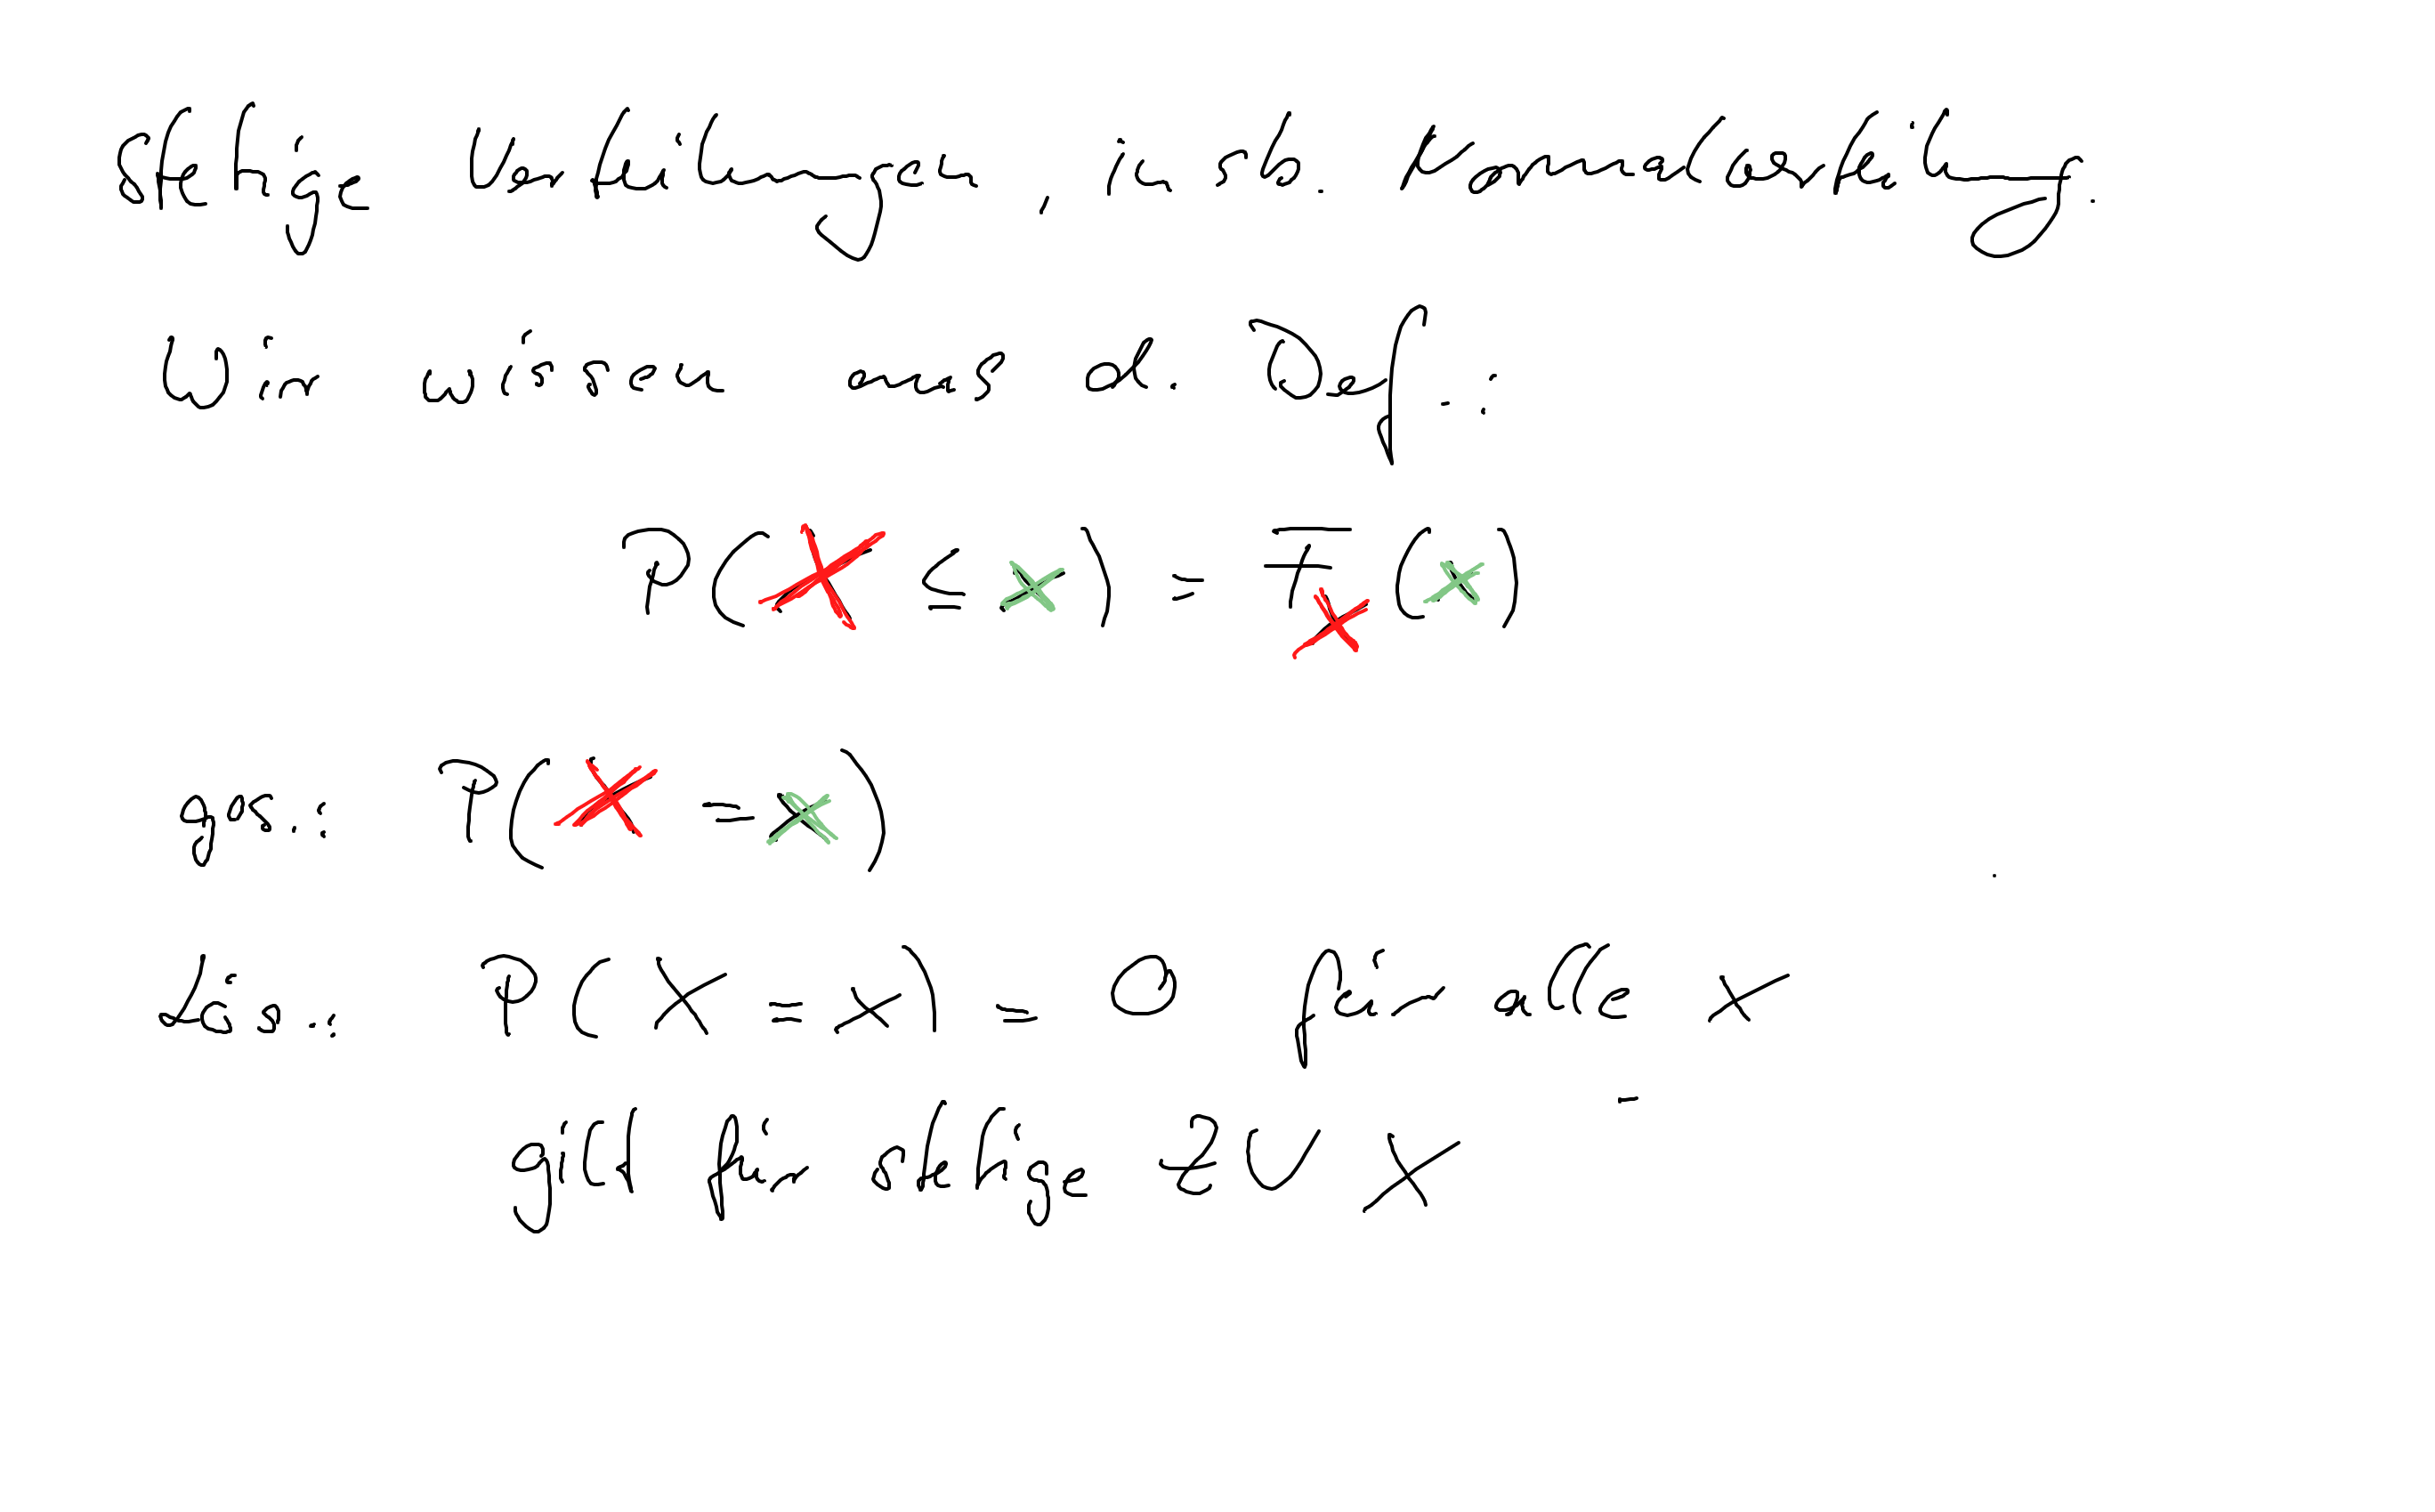 Stetige Verteilungen, insb. Normalverteilung.
Wir wissen aus d. Def.:
P(X ≤ x) = F_X(x)
ges.: P(X = x)
Lös.: P(X = x) = 0 für alle x
gilt für stetige ZV X